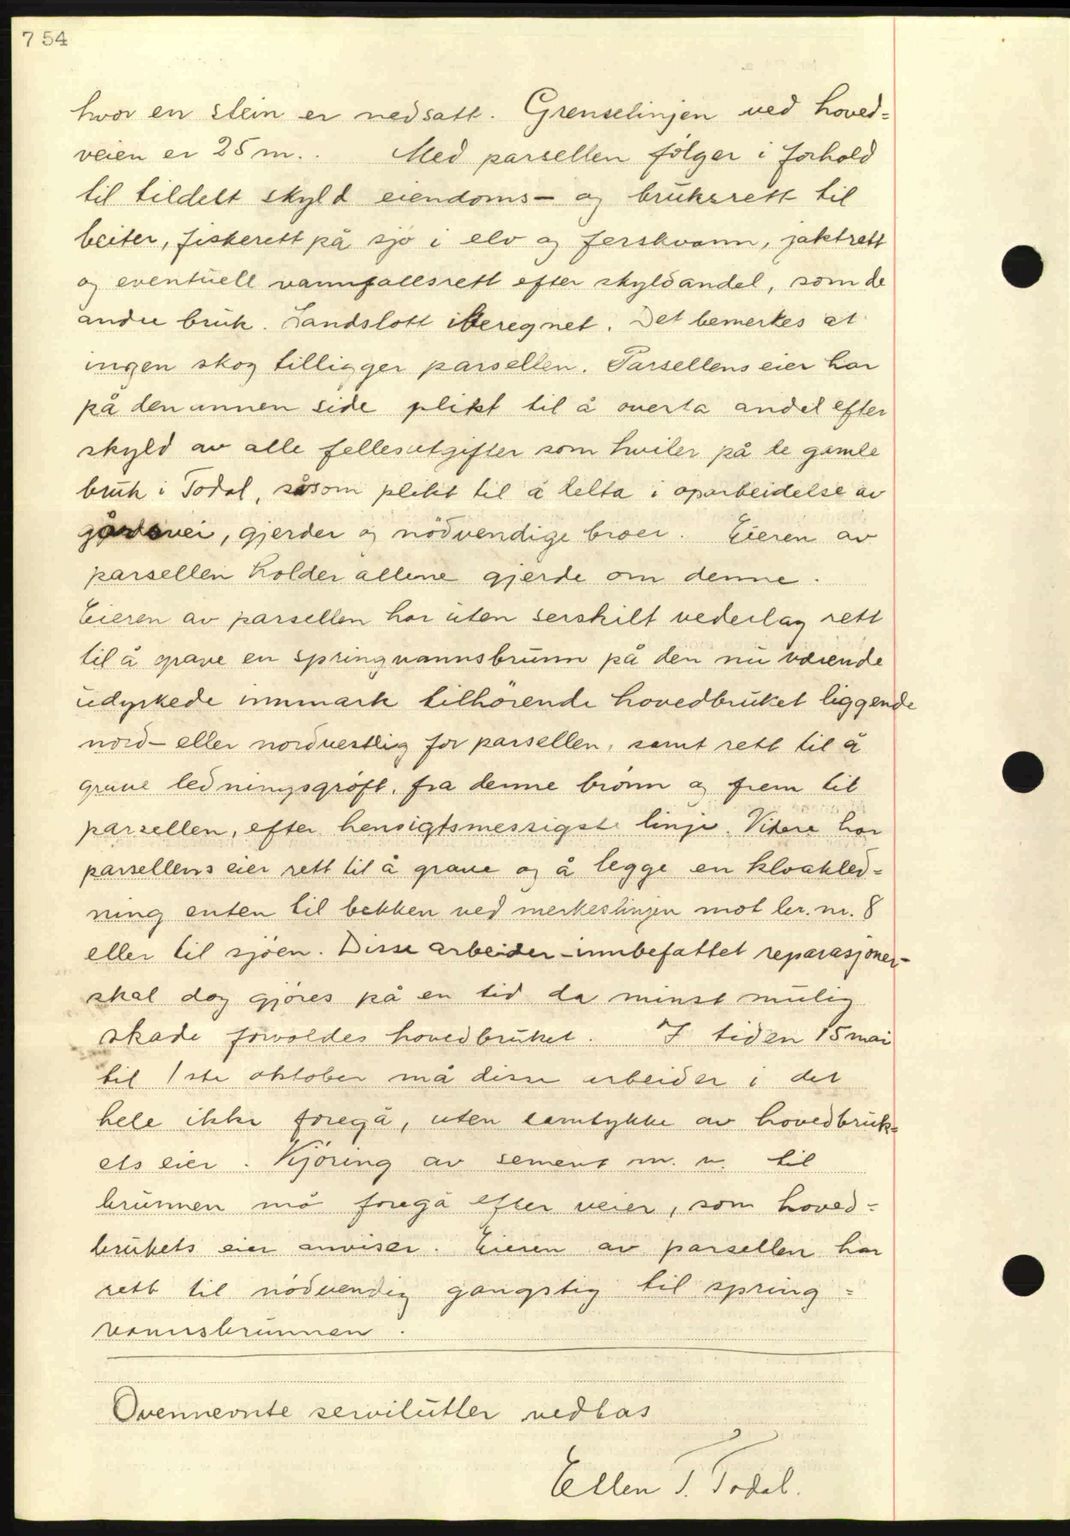 754
hvor en stein er nedsatt. Grenselinjen ved hoved=
veien er 25 m.. Med parsellen følger i forhold
til tildelt skyld eiendoms- og bruksrett til
beiter, fiskerett på sjø i elv og ferskvann, jaktrett
og eventuell vannfallsrett efter skyldandel, som de
andre bruk. Landslott iberegnet. Det bemerkes at
ingen skog tilligger parsellen. Parsellens eier har
på den annen side plikt til å overta andel efter
skyld av alle fellesutgifter som hviler på de gamle
bruk i Todal, såsom plikt til å delta i oparbeidelse av
gårdsvei, gjerder og nödvendige broer. Eieren av
parsellen holder allene gjerde om denne.
Eieren av parsellen har uten serskilt vederlag rett
til å grave en springvannsbrunn på den nu værende
udyrkede innmark tilhörende hovedbruket liggende
nord- eller nordvestlig for parsellen, samt rett til å
grave ledningsgröft, fra denne brönn og frem til
parsellen, efter hensigtsmessigste linje. Videre har
parsellens eier rett til å grave og å legge en kloakled=
ning enten til bekken ved merkeslinjen mot br. nr. 8
eller til sjöen. Disse arbeider - innbefattet reparasjoner-
skal dog gjöres på en tid da minst mulig
skade forvoldes hovedbruket. I tiden 15 mai
til 1ste oktober må disse arbeider i det
hele ikke foregå, uten samtykke av hovedbruk=
ets eier. Kjöring av sement m. v. til
brunnen må foregå efter veier, som hoved=
brukets eier anviser. Eieren av parsellen har
rett til nödvendig gangstig til spring=
vannsbrunnen.
Ovennevnte servitutter vedtas
Ellen T. Todal.